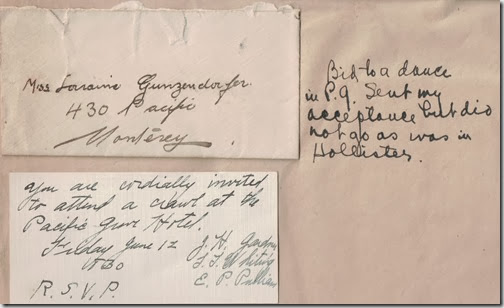 Miss Lorraine Gunzendorfer.
430 Pacific
Monterey
Bid to a dance
in P.G. Sent my
acceptance but did
not go as was in
Hollister.
You are cordially invited
to attend a crawl at the
Pacific Grove Hotel.
Friday June 12 J. H.
R.S.V.P. E. P.